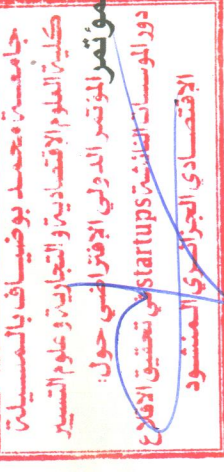 جامعة محمد بوضياف بالمسيلة
كلية العلوم الاقتصادية والتجارية وعلوم التسيير
مؤتمر المؤتمر الدولي الافتراضي حول:
دور المؤسسات الناشئة startups في تحقيق الاقلاع
الاقتصادي الجزائري المنشود